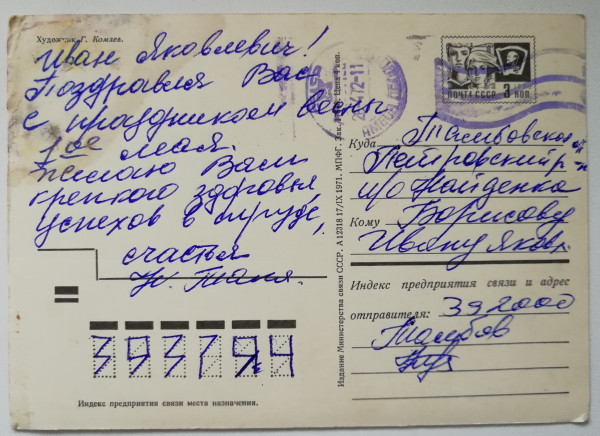 Художник Г. Комлев.
Иван Яковлевич!
Поздравляю Вас
с праздником весны
1ое мая.
Желаю Вам
крепкого здоровья
успехов в труде,
счастья
Таня.
Индекс предприятия связи места назначения.
Издание Министерства связи СССР. А 12318 17/IX 1971. МПФГ. Зак. Цена 4 коп.
ПОЧТА СССР 3 КОП
Куда Тамбовская
Петровский р-н
п/о Найденка
Кому Борисову
Ивану Яковл.
Индекс предприятия связи и адрес
отправителя: 392000
Тамбов